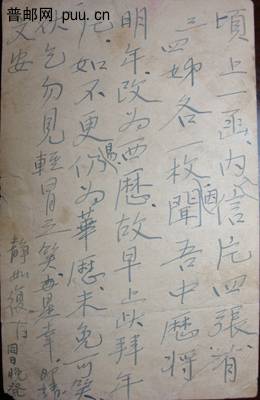 普邮网 puu.cn
頃上一函内信片四張肖
三四姊各一枚聞吾中歷將
明年改為西歷故早上此拜年
片如不更仍為華歷未免可笑
伏乞勿見輕冒之笑為幸
文安
静如復白
即晚發